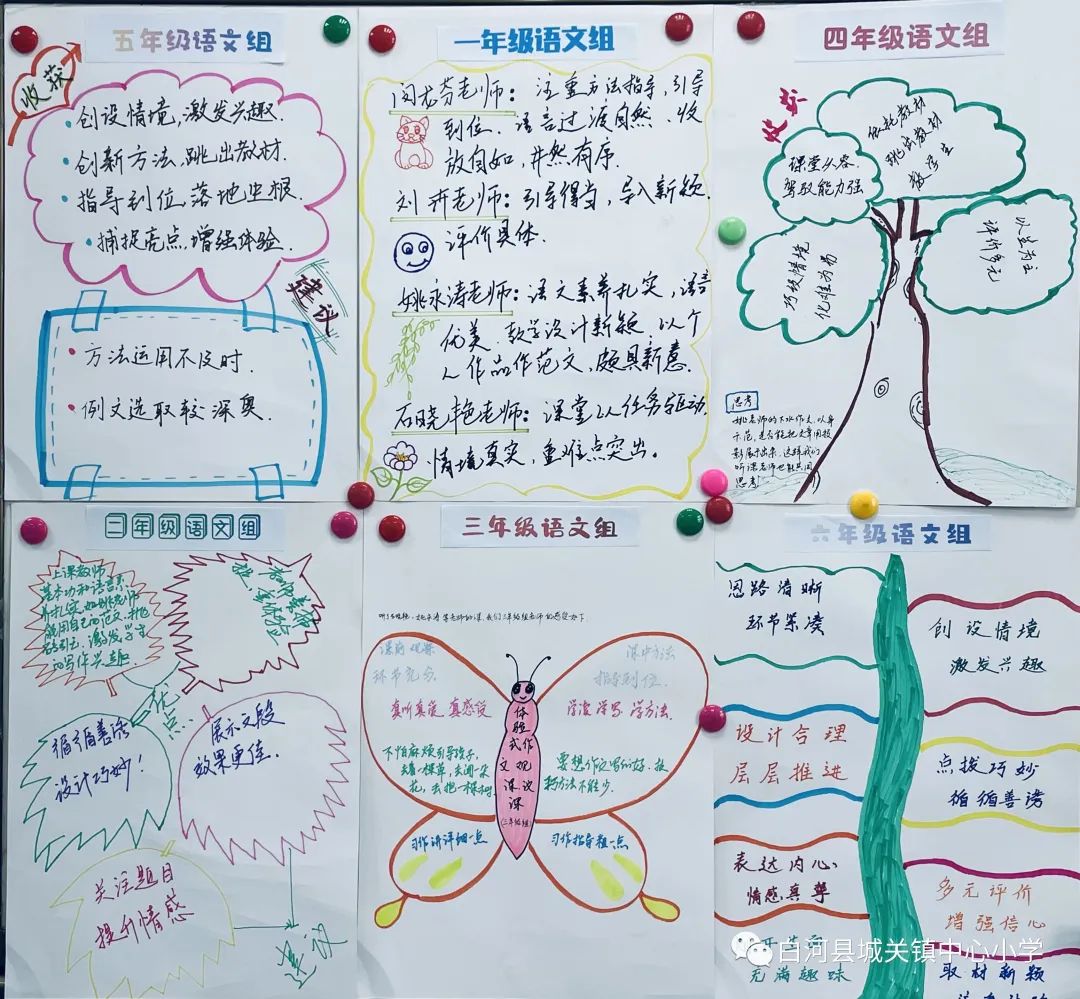 五年级语文组
收获
创设情境,激发兴趣.
创新方法,跳出教材.
指导到位,落地生根.
捕捉亮点,增强体验.
建议
方法运用不及时.
例文选取较深奥.
一年级语文组
闵龙芬老师：注重方法指导,引导
到位、语言过渡自然、收
放自如,井然有序.
刘卉老师：引导得当,导入新颖.
评价具体.
姚永涛老师：语文素养扎实,语音
优美.教学设计新颖.以个
人作品作范文,颇具新意.
石晓艳老师：课堂以任务驱动.
情境真实,重难点突出。
四年级语文组
收获
课堂从容
驾驭能力强
依托教材
跳出教材
巧设情境
化难为易
以生为主
评价多元
思考
姚老师的下水作文,以身
示范,是否能把文章用投
影展示出来,这样我们
听课老师也能共同
思考
二年级语文组
上课教师
基本功和语言素
养扎实,如姚老师
能用自己的范文,抛
砖引玉,激发学生
的写作兴趣.
优点.
循循善诱
设计巧妙!
展示文段
效果更佳.
关注题目
提升情感
建议
三年级语文组
课前观察
环节充分.
真听真说 真感受
课中方法
指导到位.
学说 学写 学方法.
不怕麻烦引导孩子,
去看一棵草,去闻一朵
花,去抱一棵树.
要想作文写的好.技
巧方法不能少.
习作讲评细一点
习作指导粗一点
体验
式作
文观
课议
课
(三年级组)
六年级语文组
思路清晰
环节紧凑
创设情境
激发兴趣
设计合理
层层推进
点拨巧妙
循循善诱
表达内心
情感真挚
多元评价
增强信心
充满趣味
取材新颖
白河县城关镇中心小学